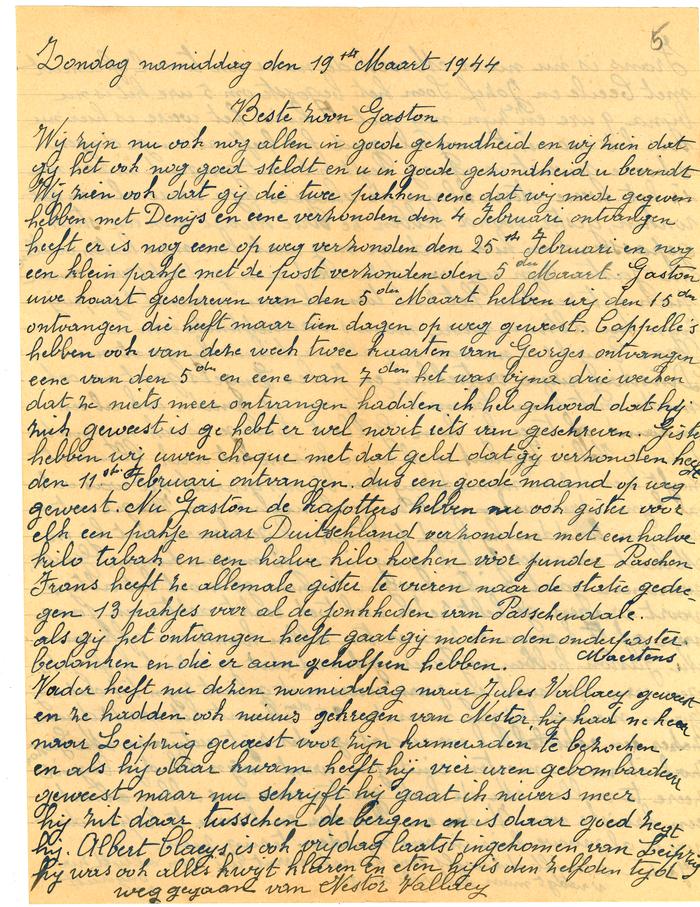 5
Zondag namiddag den 19de Maart 1944
Beste zoon Gaston
Wij zijn nu ook nog allen in goede gezondheid en wij zien dat
gij het ook nog goed steldt en u in goede gezondheid u bevindt
Wij zien ook dat gij die twee pakken eene dat wij mede gegeven
hebben met Denijs en eene verzonden den 4 Februari ontvangen
heeft er is nog eene op weg verzonden den 25ste Februari en nog
een klein pakje met de post verzonden den 5den Maart. Gaston
uwe kaart geschreven van den 5den Maart hebben wij den 15den
ontvangen die heeft maar tien dagen op weg geweest. Cappelle's
hebben ook van deze week twee kaarten van Georges ontvangen
eene van den 5den en eene van 7den het was bijna drie weken
dat ze niets meer ontvangen hadden ik heb gehoord dat hij
ziek geweest is ge hebt er wel nooit iets van geschreven. Gister
hebben wij uwen cheque met dat geld dat gij verzonden heeft
den 11ste Februari ontvangen. dus een goede maand op weg
geweest. Nu Gaston de kajotters hebben nu ook gister voor
elk een pakje naar Duitschland verzonden met een halve
kilo tabak en een halve kilo koeken voor junder Paschen
Frans heeft ze allemale gister te vieren naar de statie gedre
gen 13 pakjes voor al de jonkheden van Passchendale.
als gij het ontvangen heeft gaat gij moeten den onderpaster
bedanken en die er aan geholpen hebben. Maertens.
Vader heeft nu dezen namiddag naar Jules Vallaey geweest
en ze hadden ook nieuws gekregen van Nestor, hij had ne keer
naar Leipzig geweest voor zijn kameraden te bezoeken
en als hij daar kwam heeft hij vier uren gebombardeerd
geweest maar nu schrijft hij gaat ik nievers meer
hij zit daar tusschen de bergen en is daar goed zegt
hij. Albert Claeys is ook vrijdag laatst ingekomen van Leipzig
hij was ook alles kwijt kleeren en eten hij is den zelfden tijd
weg gegaan van Nestor Vallaey